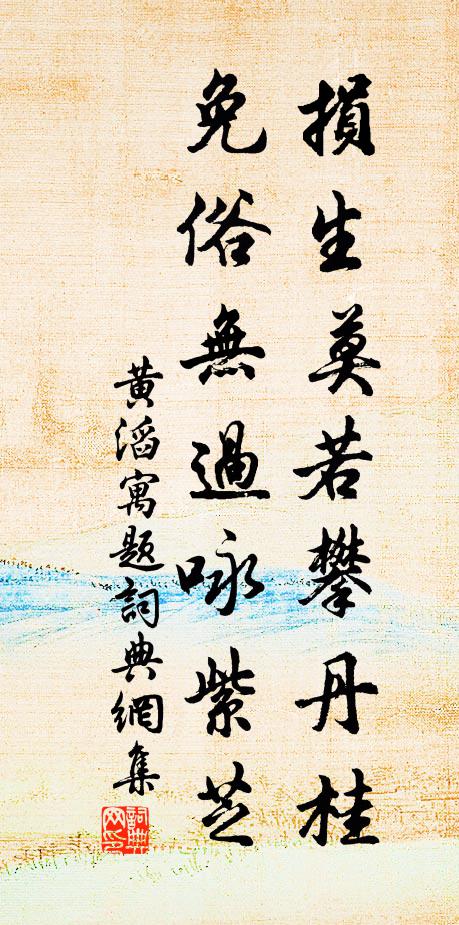 損生莫若攀丹桂
免俗無過咏紫芝
黃滔寓題詞典網集
詞典网印